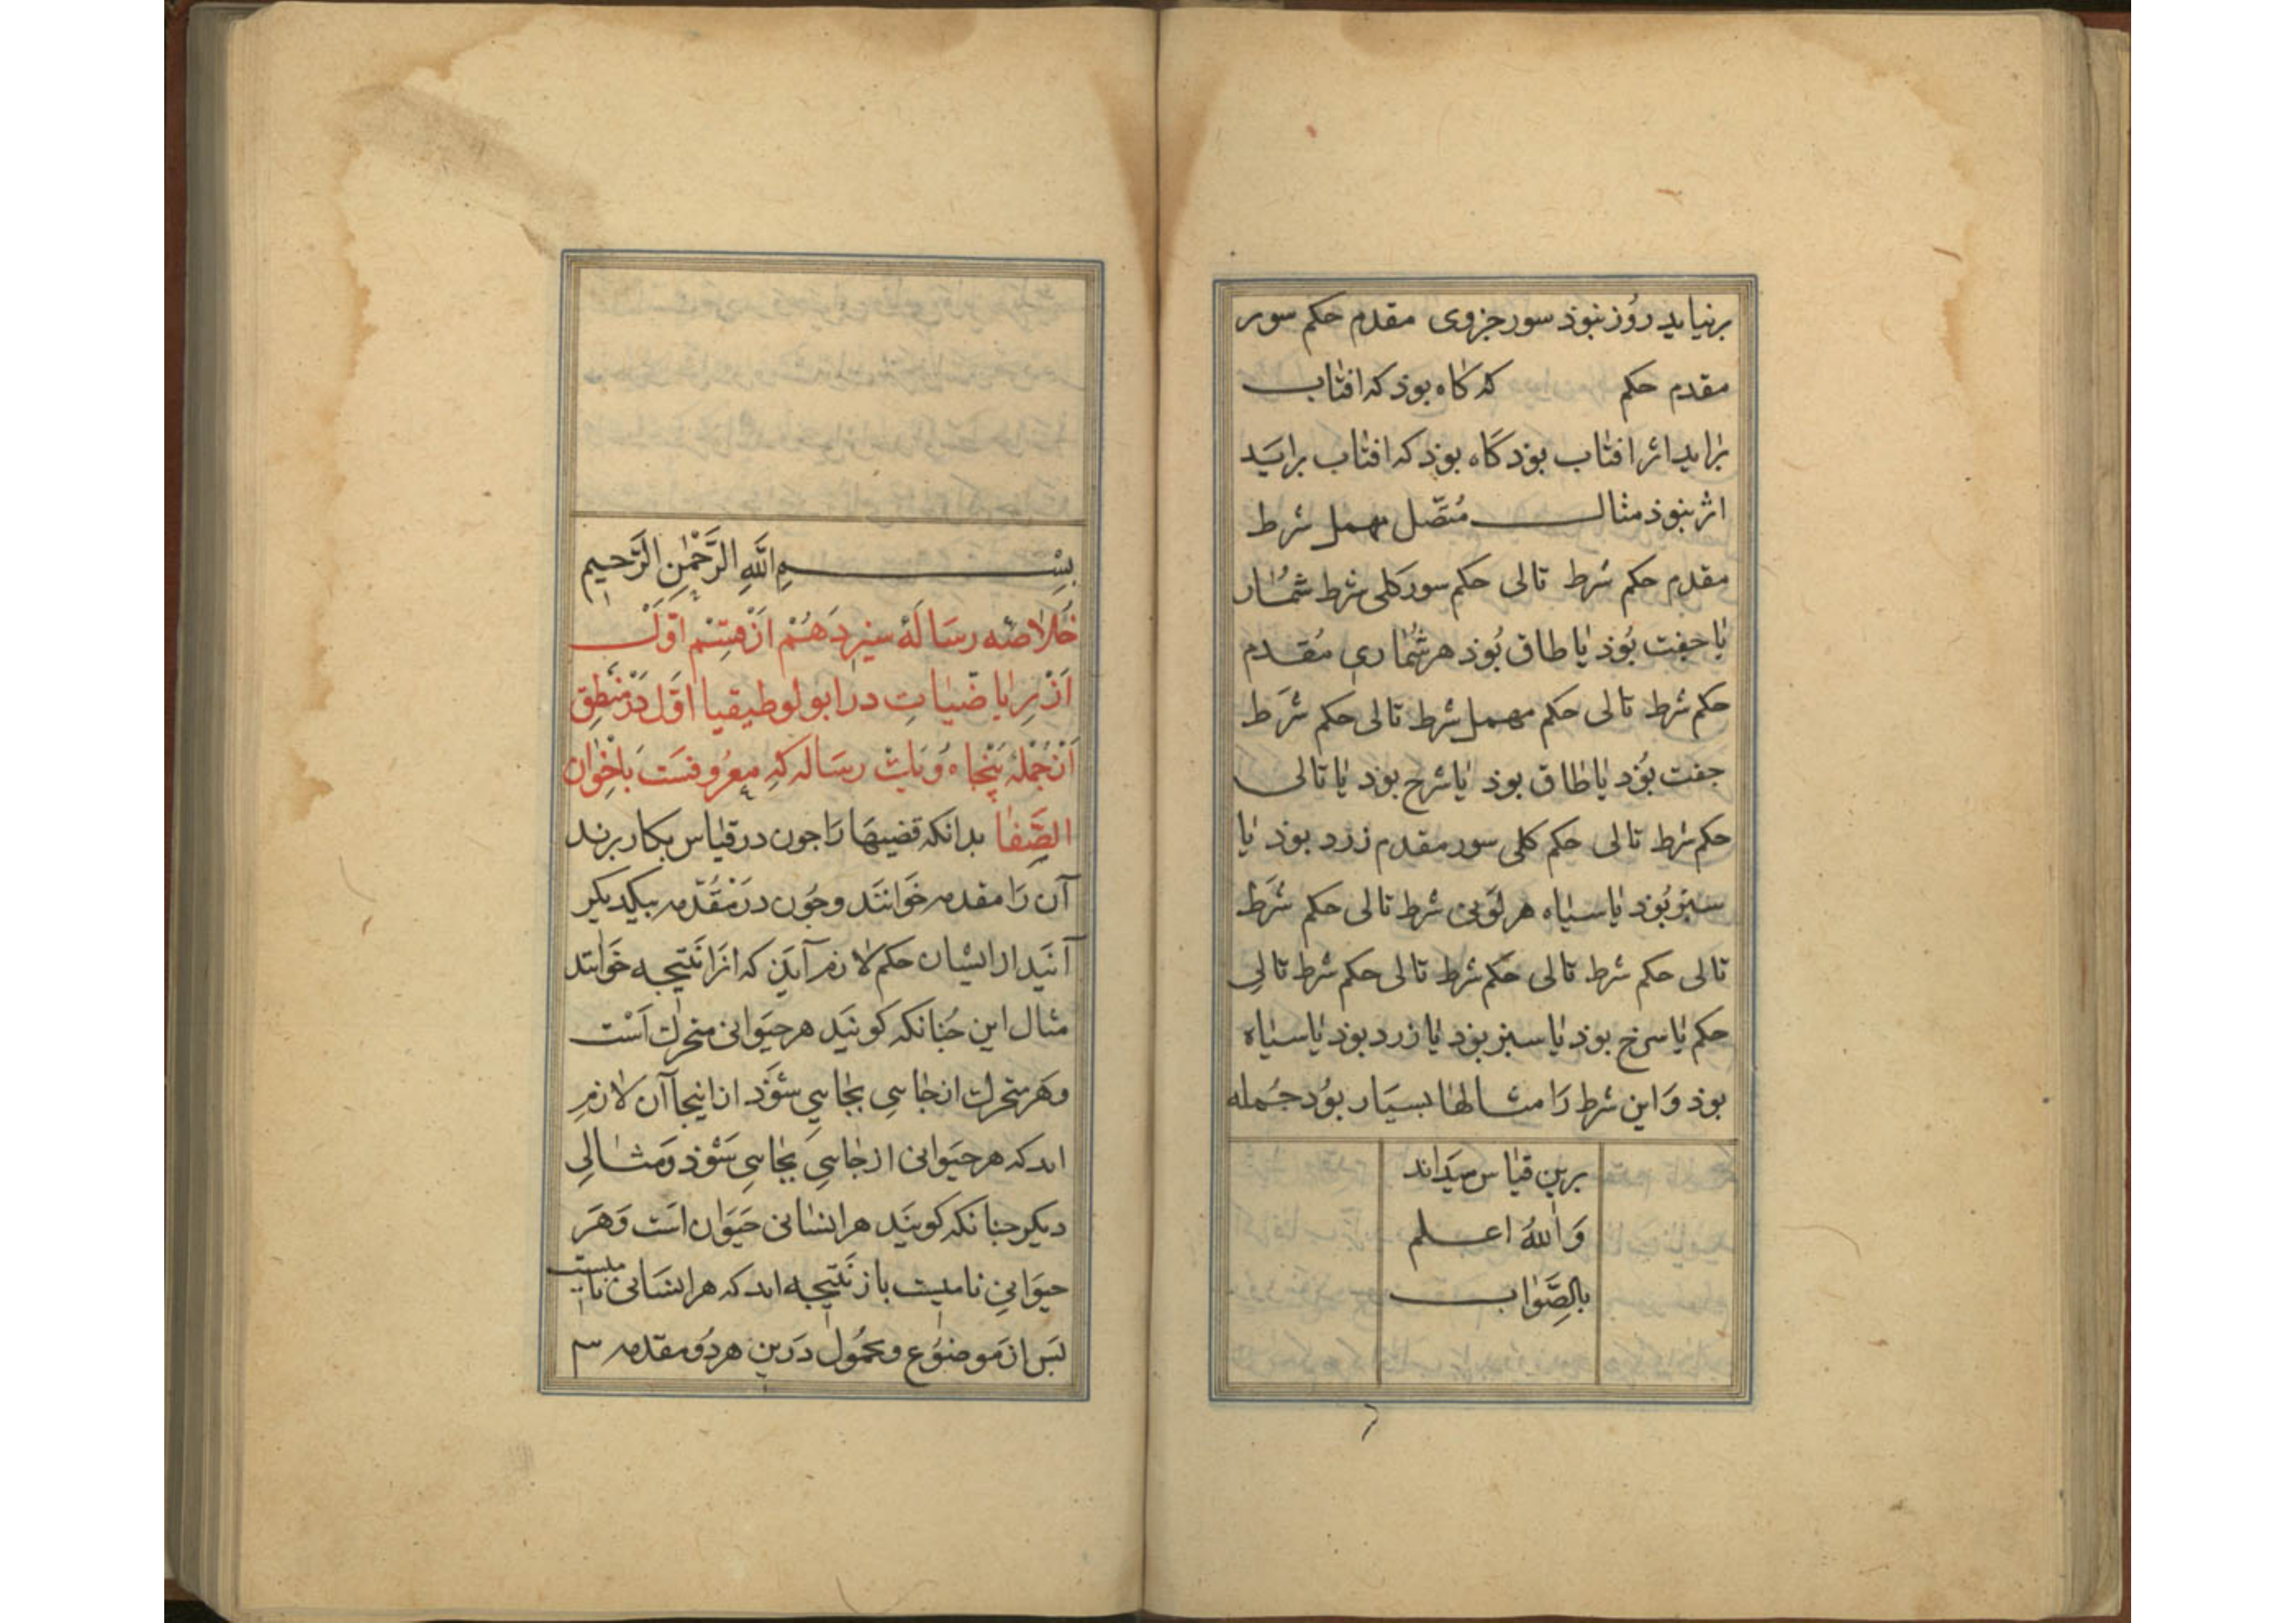 برنیاید روز نبوذ سور جزوی مقدم حکم سور
مقدم حکم که کاه بوذ که افتاب
براید اثر افتاب بوذ کاه بوذ که افتاب براید
اثر نبوذ مثال متصل مهمل شرط
مقدم حکم شرط تالی حکم سور کلی شرط شمار
یا جفت بوذ یا طاق بوذ هر شماری مقدم
حکم شرط تالی حکم مهمل شرط تالی حکم شرط
جفت بوذ یا طاق بوذ یا شرح بوذ یا تالی
حکم شرط تالی حکم کلی سور مقدم زرد بوذ یا
سبز بوذ یا سیاه هر لونی شرط تالی حکم شرط
تالی حکم شرط تالی حکم شرط تالی حکم شرط تالی
حکم یا سرخ بوذ یا سبز بوذ یا زرد بوذ یا سیاه
بوذ و این شرط را مثالها بسیار بود جمله
برین قیاس میداند
والله اعلم
بالصواب
بسم الله الرحمن الرحیم
خلاصه رساله سیزدهم از قسم اول
از ریاضیات در ابولوطیقیا اول در منطق
از جمله پنجاه و یک رساله که معروفست باخوان
الصفا بدانکه قضیها را جون در قیاس بکار برند
آن را مقدمه خوانند وجون در مقدمه بیکدیکر
آنید از ایشان حکم لازم آیذ که انرا نتیجه خوانند
مثال این جنانکه کونید هر حیوانی متحرک است
وهر متحرک از جایی بجایی شوذ از اینجا آن لازم
اید که هر حیوانی از جایی بجایی شوذ ومثالی
دیکر جنانکه کویند هر انسانی حیوان است وهر
حیوانی نامیست باز نتیجه اید که هر انسانی نامیست
بس از موضوع و محمول درین هر دو مقدمه سه